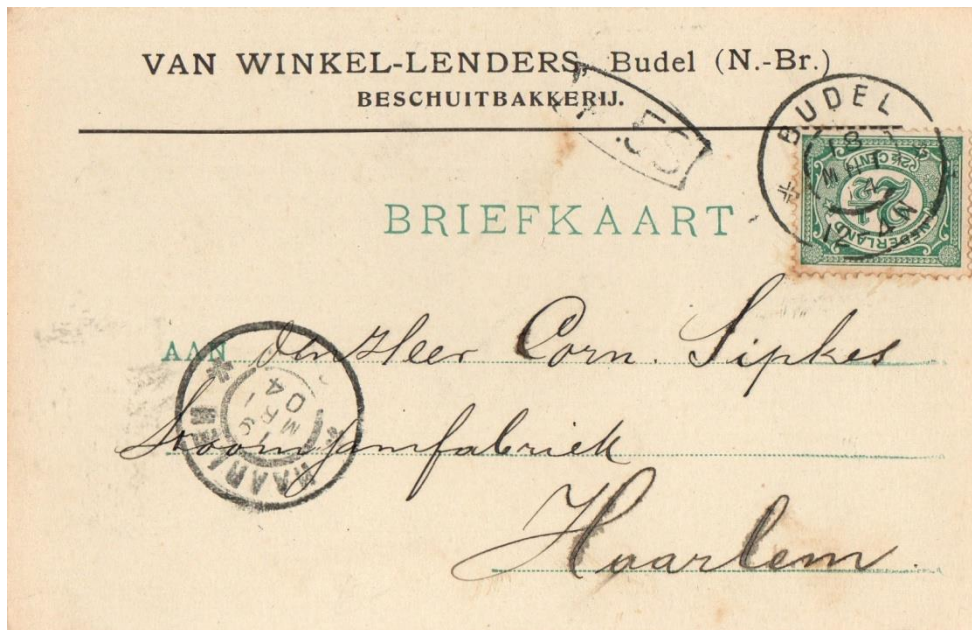 VAN WINKEL-LENDERS, Budel (N.-Br.)
BESCHUITBAKKERIJ.
BUDEL
18
MRT
04
12-4N
2½ CENT
NEDERLAND
2½
BRIEFKAART
AAN den Heer Corn. Sipkes
Stoomjamfabriek
Haarlem.
HAARLEM
MRT
04